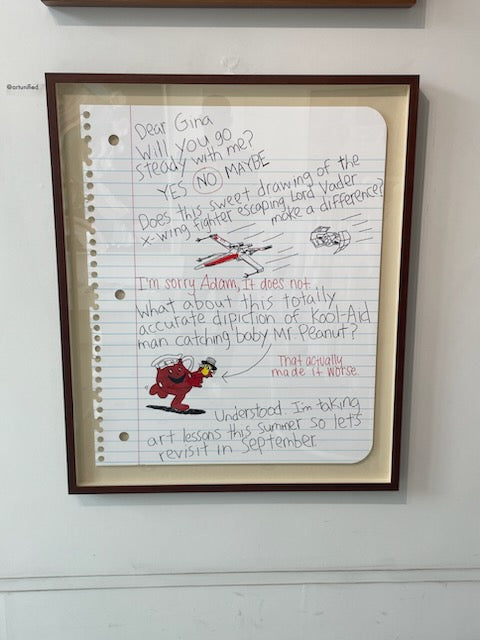 @artunified
Dear Gina
Will you go
steady with me?
YES NO MAYBE
Does this sweet drawing of the
X-wing fighter escaping Lord Vader
make a difference?
I'm sorry Adam, It does not.
What about this totally
accurate dipiction of Kool-Aid
man catching baby Mr. Peanut?
That actually
made it worse.
Understood. I'm taking
art lessons this summer so let's
revisit in September